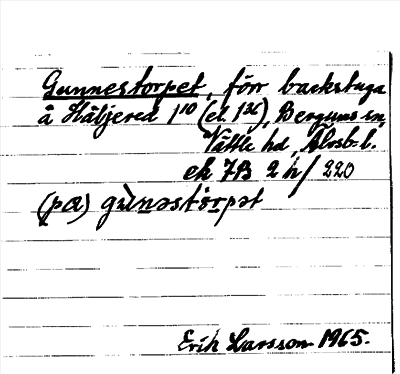 Gunnestorpet, förr backstuga
å Häljered 1¹⁰ (el. 1³⁶), Bergums sn,
Vättle hd, Älvsb. l.
ek 7B 2 h/220
(pa) gùnəstórpət
Erik Larsson 1965.